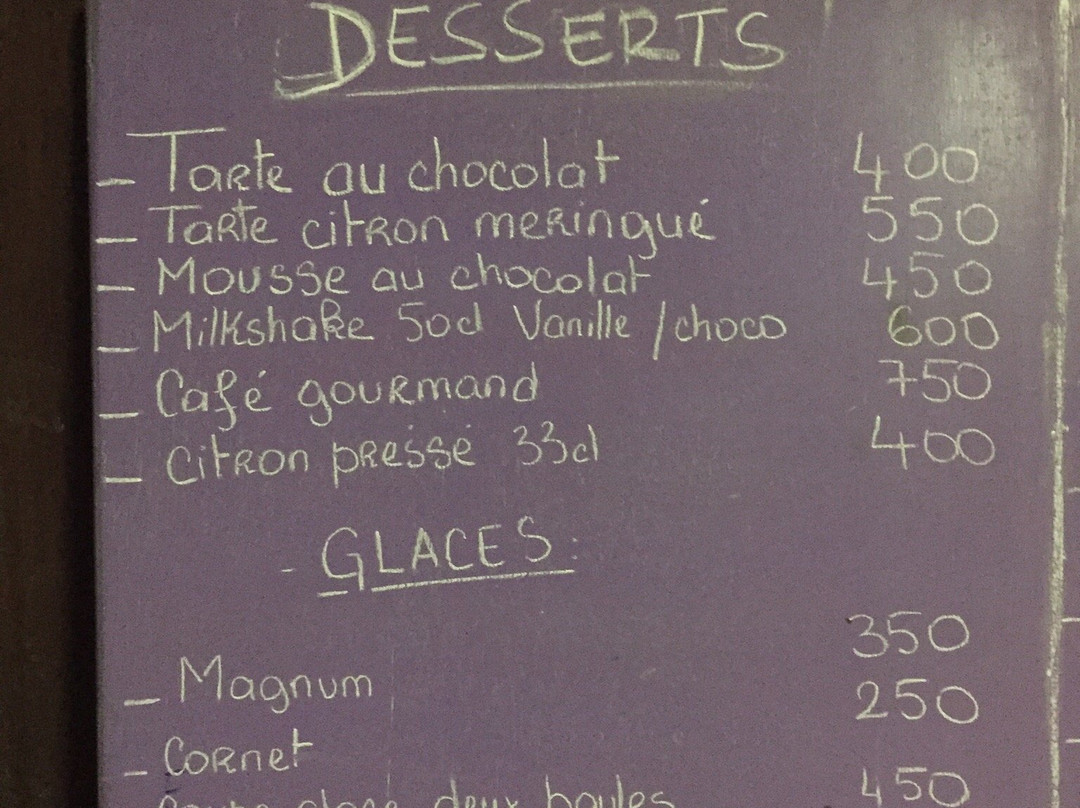 DESSERTS
_ Tarte au chocolat 400
_ Tarte citron meringué 550
_ Mousse au chocolat 450
_ Milkshake 50cl Vanille / choco 600
_ Café gourmand 750
_ Citron pressé 33cl 400
- GLACES :
_ Magnum 350
_ Cornet 250
deux boules 450